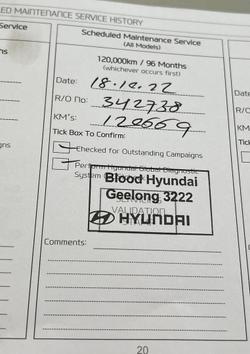 ED MAINTENANCE SERVICE HISTORY
Service
Scheduled Maintenance Service
(All Models)
120,000km / 96 Months
(whichever occurs first)
Date: 18.10.22
R/O no: 342738
KM's: 120669
Tick Box To Confirm:
Checked for Outstanding Campaigns
Perform Hyundai Global Diagnostic
System
Blood Hyundai
Geelong 3222
VALIDATION
HYUNDAI
Comments:
20
Date
R/O
KM
Tick